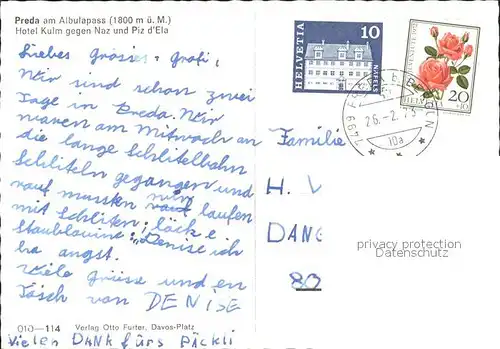 Preda am Albulapass (1800 m ü. M.)
Hotel Kulm gegen Naz und Piz d'Ela
Liebes Grossi - Grofi,
Wir sind schon zwei
Tage in Preda. Wir
waren am Mittwoch an
die lange Schlittelbahn
Schlitteln gegangen und
rauf mussten wir laufen
mit Schlitten;
Staublawine: "Denise ich
ha angst.
Viele Grüsse und en
Tösch von DENISE
010-114 Verlag Otto Furter, Davos-Platz
Vielen DANK fürs Päckli
HELVETIA
10
NÄFELS
HELVETIA
20
26.-2.73
10a
Familie
H. V
DANG
privacy protection
Datenschutz
80